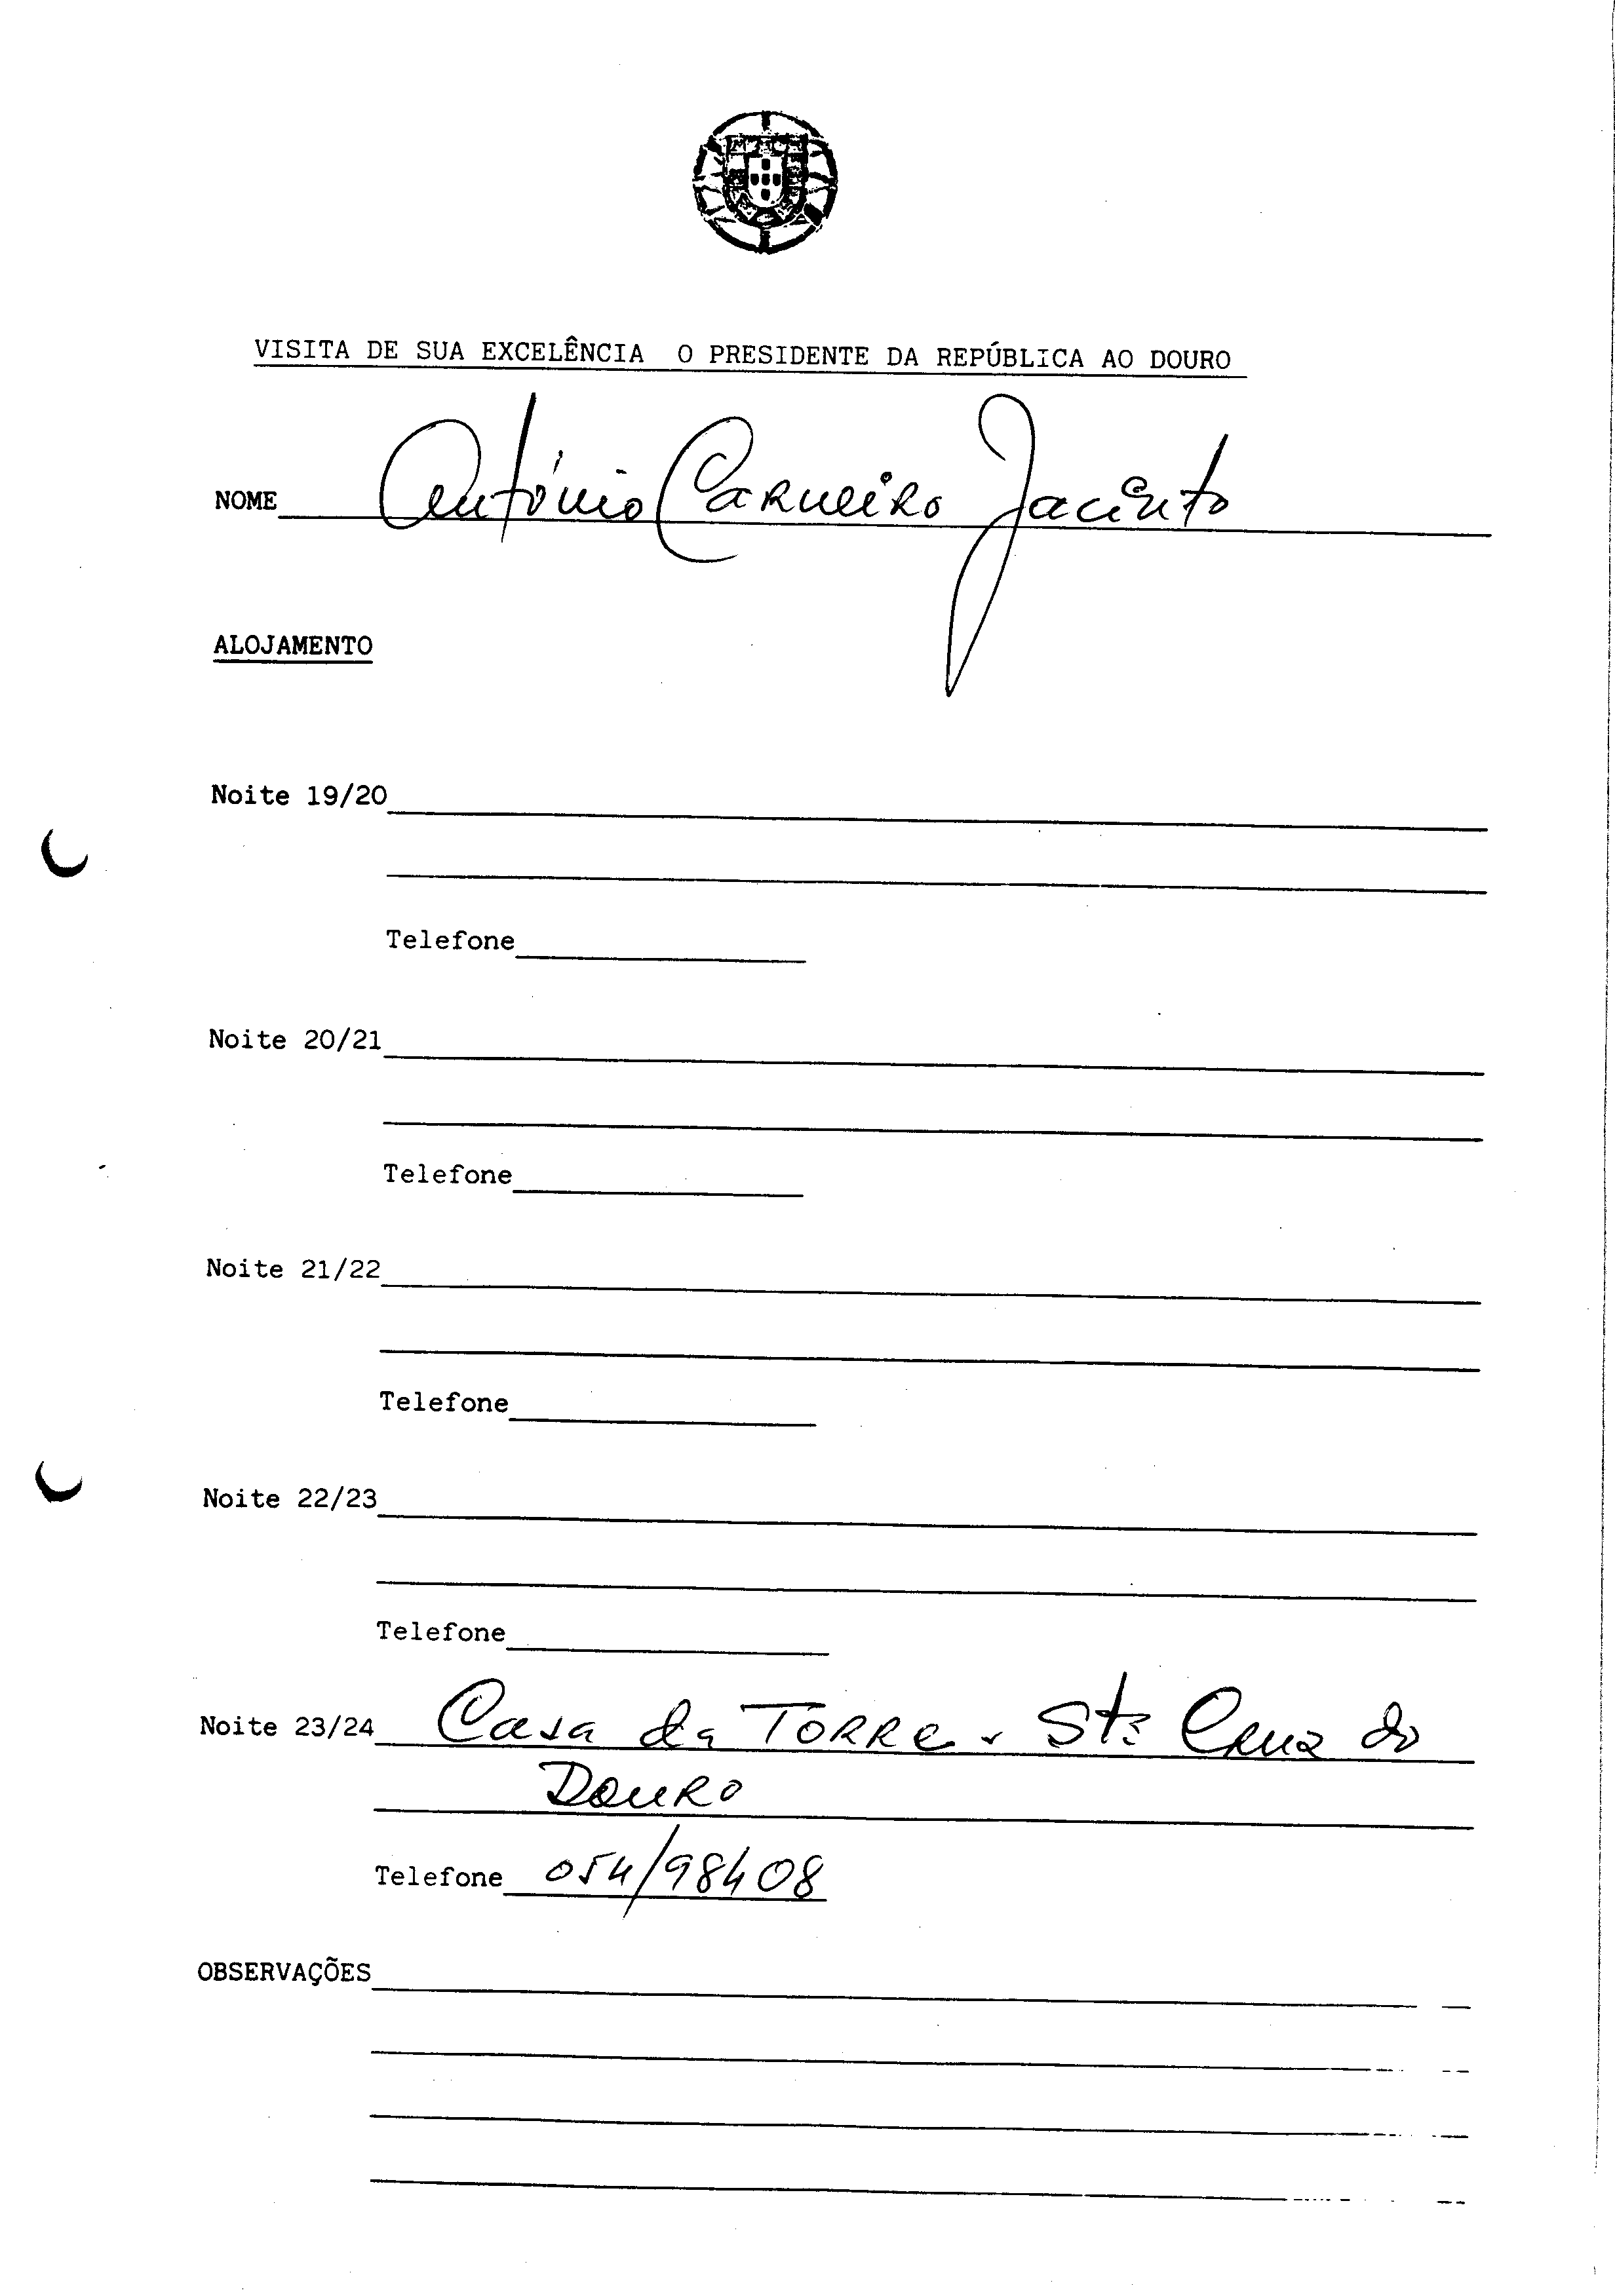 VISITA DE SUA EXCELÊNCIA O PRESIDENTE DA REPÚBLICA AO DOURO
NOME António Carneiro Jacinto
ALOJAMENTO
Noite 19/20
Telefone
Noite 20/21
Telefone
Noite 21/22
Telefone
Noite 22/23
Telefone
Noite 23/24 Casa da Torre - Stª Cruz do
Douro
Telefone 054/98408
OBSERVAÇÕES